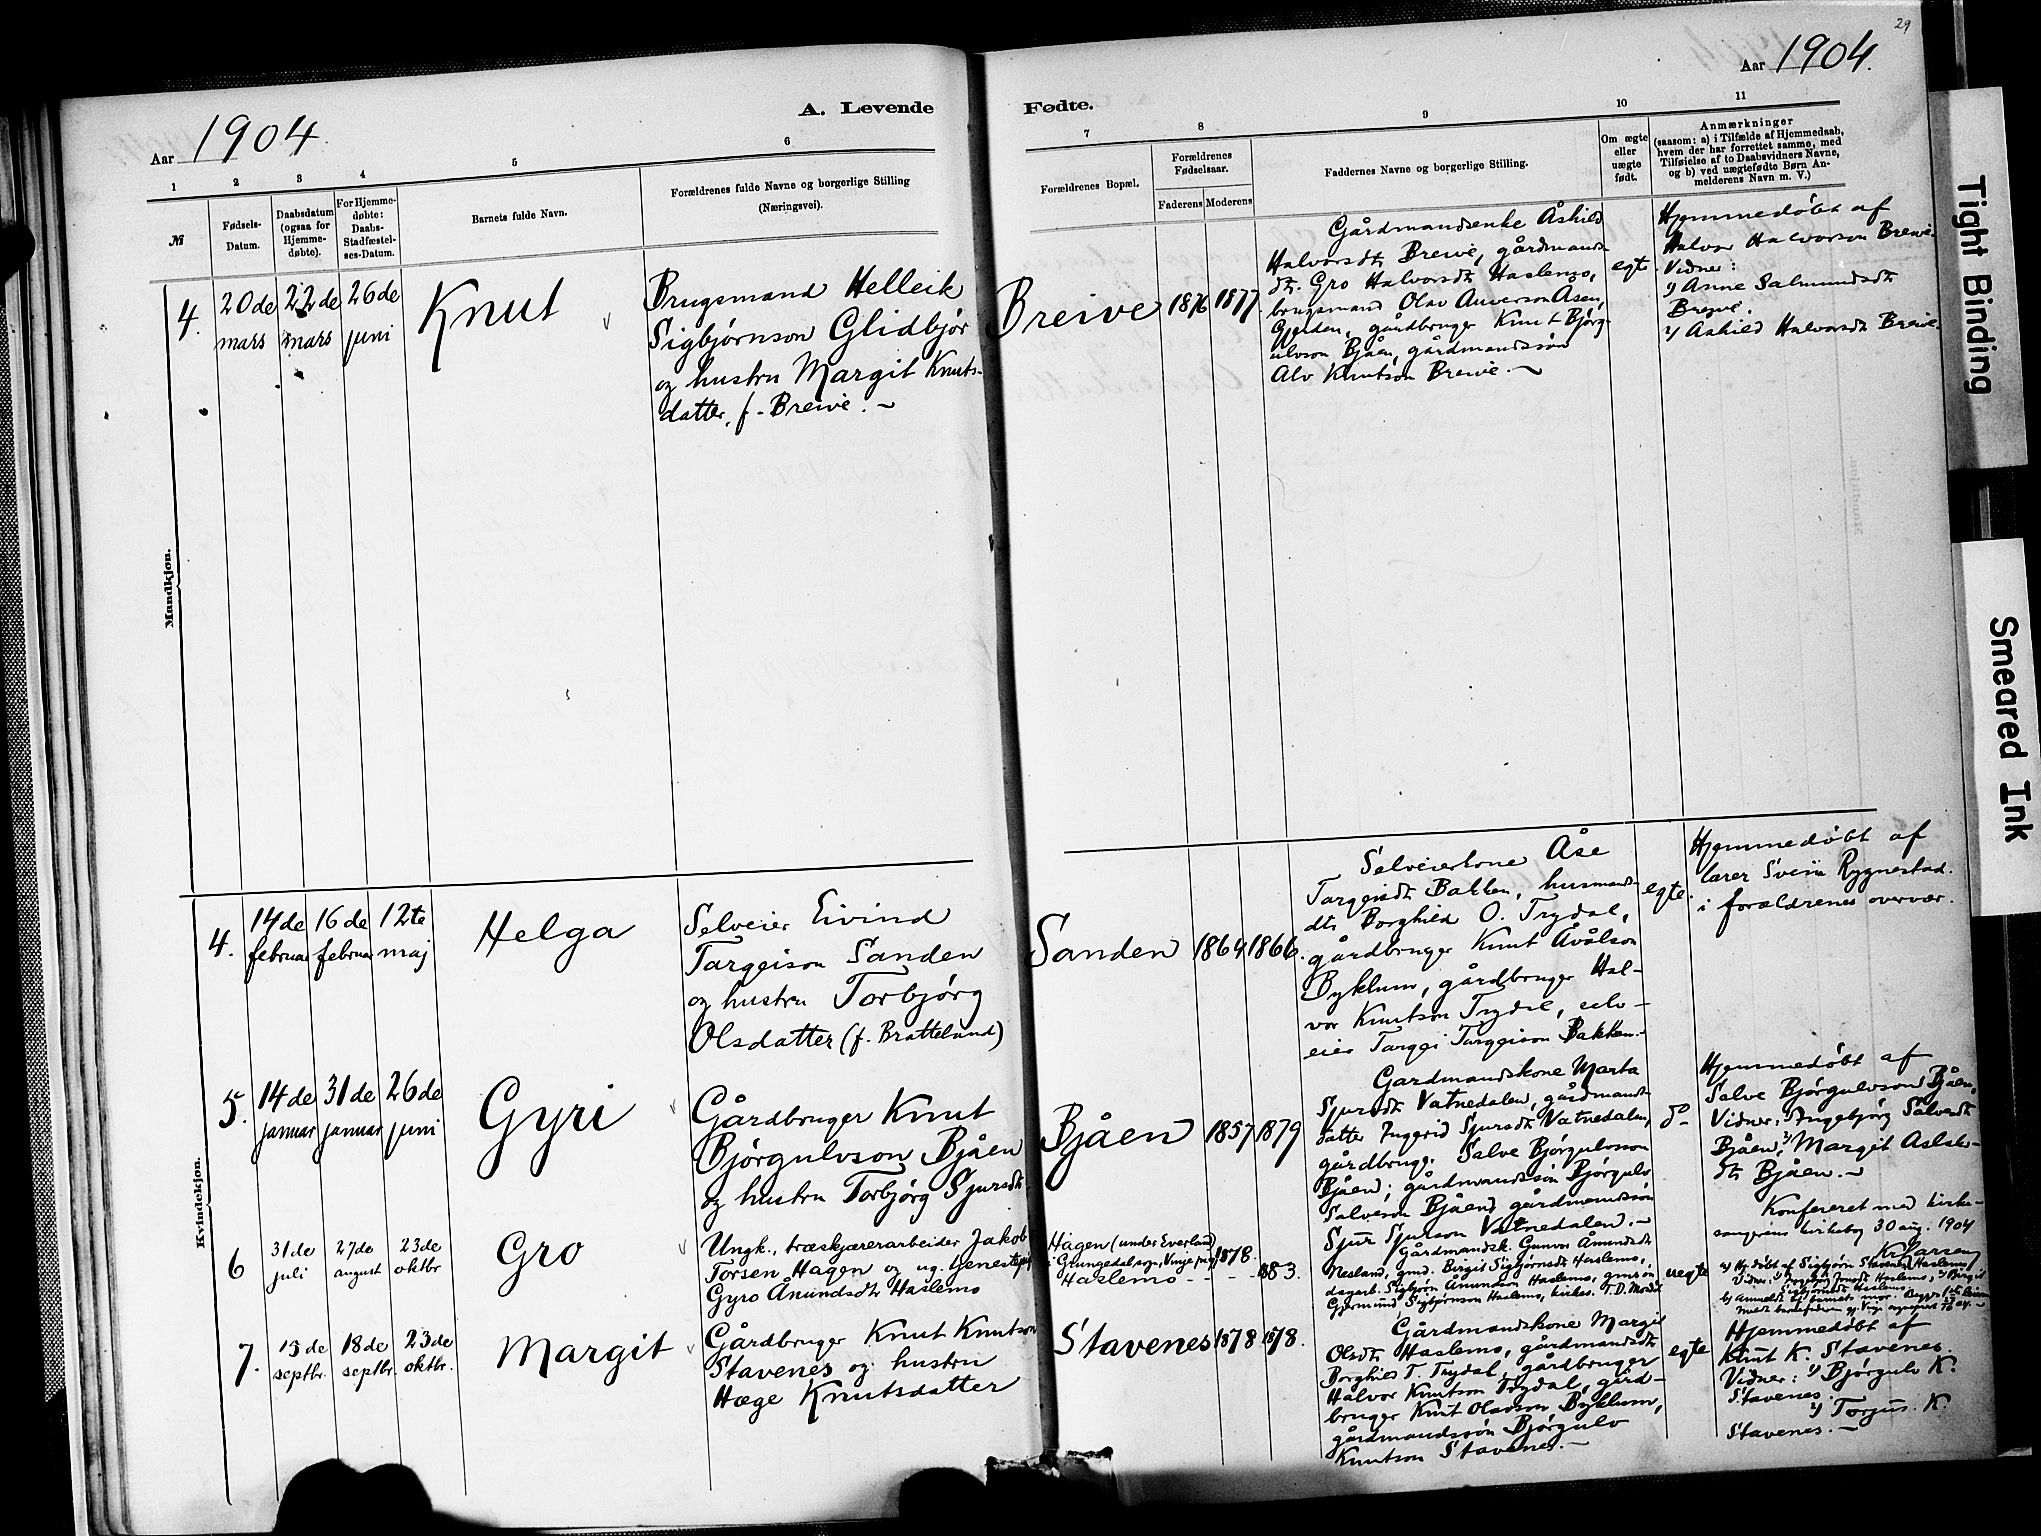 29
1904.
Aar 1904.
A. Levende Fødte.
1
2
3
4
5
6
7
8
9
10
11
№
Fødsels-
Datum.
Daabsdatum
(ogsaa for
Hjemme-
døbte).
For Hjemme-
døbte:
Daabs-
Stadfæstel-
ses-Datum.
Barnets fulde Navn.
Forældrenes fulde Navne og borgerlige Stilling
(Næringsvei).
Forældrenes Bopæl.
Forældrenes
Fødselsaar.
Faderens Moderens
Faddernes Navne og borgerlige Stilling.
Om ægte
eller
uægte
født.
Anmærkninger
(saasom: a) i Tilfælde af Hjemmedaab,
hvem der har forrettet samme, med
Tilføielse af to Daabsvidners Navne,
og b) ved uægtefødte Børn An-
melderens Navn m. V.)
Mandkjøn.
4.
20de
mars
22de
mars
26de
juni
Knut
Brugsmand Helleik
Sigbjørnson Glidbjør
og hustru Margit Knuts-
datter, f. Breive. ~
Breive
1876
1877
Gårdmandsenke Åshild
Halvorsdt. Breive, gårdmands-
dt. Gro Halvorsdt. Haslemo,
brugsmand Olav Auverson Åsen,
Gjerden, gårdbruger Knut Bjørg-
ulvson Bjåen, gårdmandssøn
Alv Knutson Breive. ~
egt
Hjemmedøbt af
Halvor Halvorson Breive.
Vidner:
1) Anne Salmundsdt
Breive.
2) Åshild Halvorsdt Breive.
Kvindekjøn.
4.
14de
februar
16de
februar
12te
maj
Helga
Selveier Eivind
Targeison Sanden
og hustru Torbjørg
Olsdatter (f. Bratteland)
Sanden
1864
1866.
Selveierkone Åse
Targeisdt Bakken, husmands-
dt. Borghild O. Trydal,
gårdbruger Knut Åvålson
Byklum, gårdbruger Hal-
vor Knutson Trydal, selv-
eier Targei Targeison Bakken. ~
egte.
Hjemmedøbt af
lærer Svein Rygnestad
i forældrenes overvær.
5.
14de
januar
31de
januar
26de
juni
Gyri
Gårdbruger Knut
Bjørgulvson Bjåen
og hustru Torbjørg Sjursdt
Bjåen
1857
1879
Gardmandskone Marta
Sjursdt Vatnedalen, gårdmands-
datter Ingerid Sjursdt Vatnedalen,
gårdbrug. Salve Bjørgulvsson
Bjåen; gårdmandssøn Bjørgulv
Salveson Bjåen, gårdmandssøn
Sjur Sjurson Vatnedalen. ~
do
Hjemmedøbt af
Salve Bjørgulvson Bjåen,
Vidner: 1) Ingebjørg Salvesdt
Bjåen, 2) Margit Aslaks-
dt Bjåen. ~
Konfereret med kirke-
sangerens kirkebog 30 aug. 1904
Kr. Larsen
6
31de
juli
27de
august
23de
oktbr
Gro
Ungk., træskjærerarbeider Jakob
Torsen Hagen og ug. tjenestepi.
Gyro Åmundsdt Haslemo
Hagen (under Everland)
i Grungedal sogn, Vinje pgj.
Haslemo - - - -
1878.
1883.
Gårdmandsk. Gunvor Åmundsdt
Nesland, gmd. Birgit Sigbjørnsdt Haslemo,
dagarb. Sigbjørn Åmundson Haslemo, gmssøn
Gjermund Sigbjørnson Haslemo, kirkes. T. D. Mosdøl
uegte
a) Hj. døbt af Sigbjørn Haslemo
7.
13de
septbr.
18de
septbr.
23de
oktbr.
Margit
Gårdbruger Knut Knutson
Stavenes og hustru
Hæge Knutsdatter
Stavenes
1878
1878.
Gårdmandskone Margit
Olsdt Haslemo, gårdmandsdt
Borghild T. Trydal, gårdbruger
Halvor Knutson Trydal, gård-
bruger Knut Olavson Byklum,
gårdmandssøn Bjørgulv
Knutson Stavenes. ~
egte
Hjemmedøbt af
Knut K. Stavenes.
Vidner: 1) Bjørgulv K.
Stavenes.
2) Torjus K.
Stavenes. ~
Tight Binding
Smeared Ink